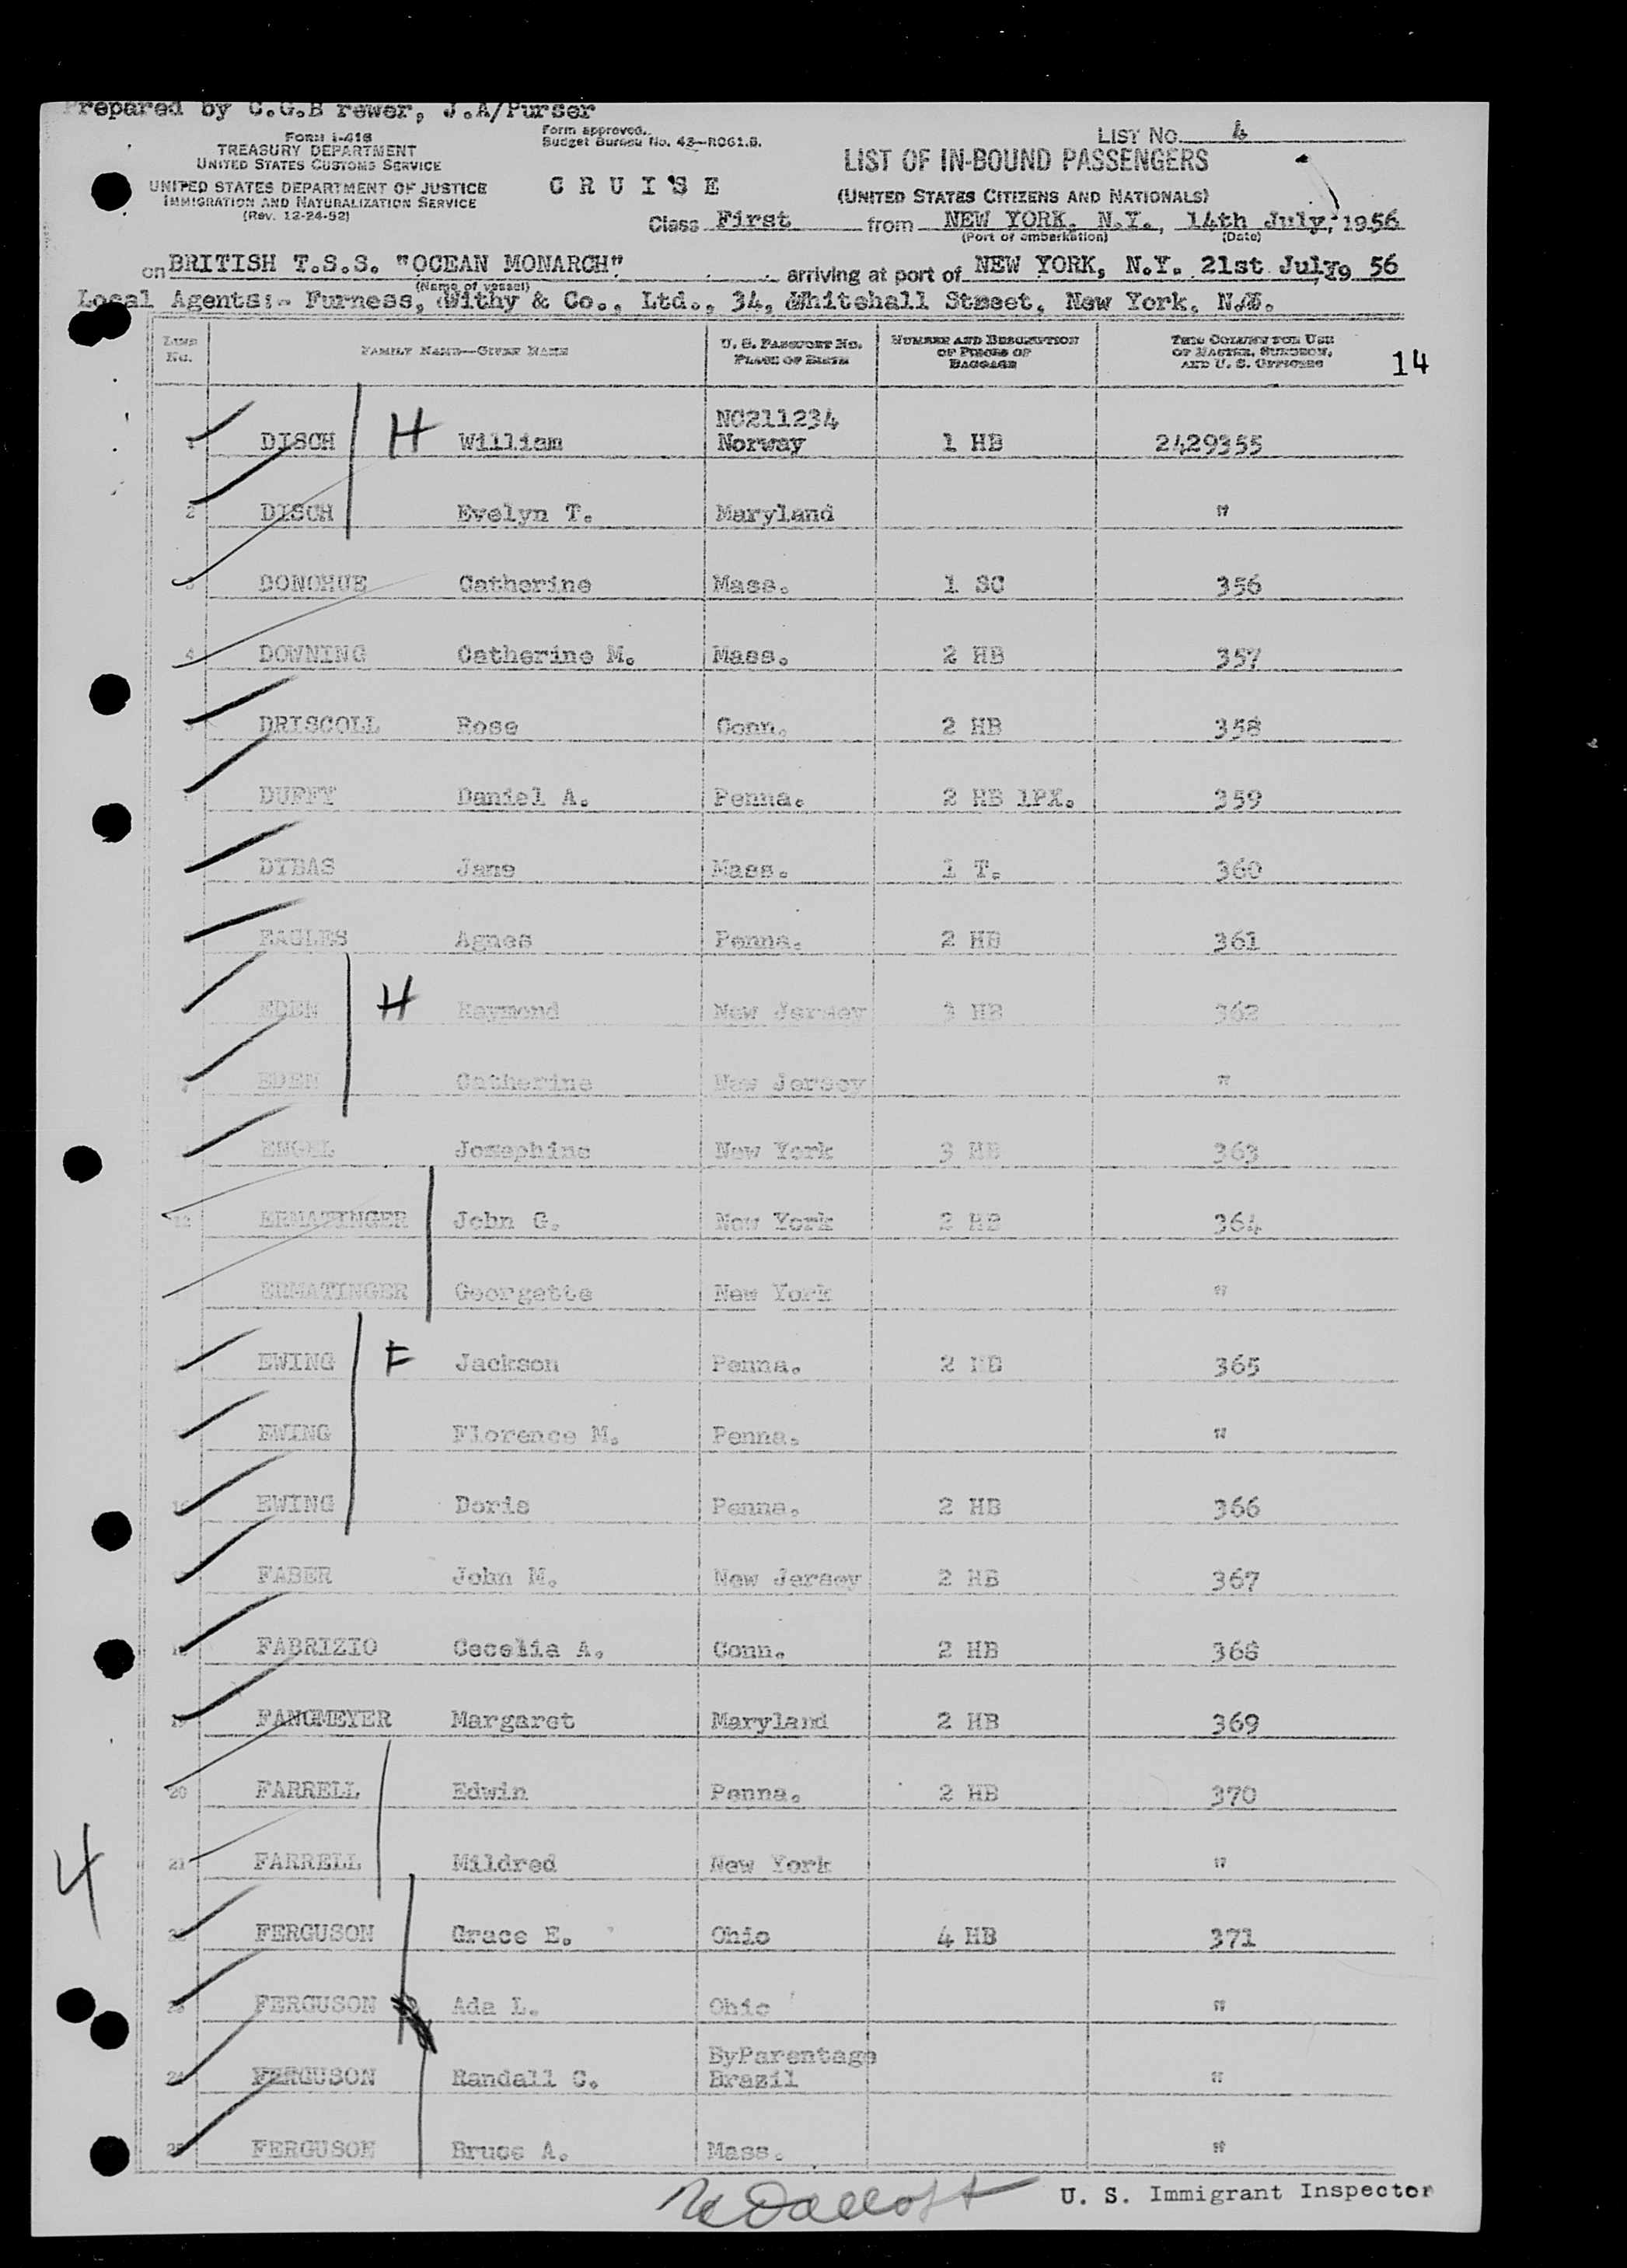 Prepared by C.G.B rewer, J.A/Purser
FORM I-418
TREASURY DEPARTMENT
UNITED STATES CUSTOMS SERVICE
UNITED STATES DEPARTMENT OF JUSTICE
IMMIGRATION AND NATURALIZATION SERVICE
(Rev. 12-24-52)
Form approved.
Budget Bureau No. 43-R061.5.
C R U I S E
LIST NO. 4
LIST OF IN-BOUND PASSENGERS
(UNITED STATES CITIZENS AND NATIONALS)
Class First from NEW YORK, N.Y., 14th July, 1956
(Port of embarkation) (Date)
on BRITISH T.S.S. "OCEAN MONARCH" arriving at port of NEW YORK, N.Y. 21st July, 19 56
(Name of vessel)
Local Agents:- Furness, Withy & Co., Ltd., 34, Whitehall Street, New York, N.Y.
LINE No. FAMILY NAME—GIVEN NAME U. S. PASSPORT NO. PLACE OF BIRTH NUMBER AND DESCRIPTION OF PIECES OF BAGGAGE THIS COLUMN FOR USE OF MASTER, SURGEON, AND U. S. OFFICERS 14
NC211234
1 DISCH H William Norway 1 HB 2429355
2 DISCH Evelyn T. Maryland "
3 DONOHUE Catherine Mass. 1 SC 356
4 DOWNING Catherine M. Mass. 2 HB 357
5 DRISCOLL Rose Conn. 2 HB 358
DUFFY Daniel A. Penna. 2 HB 1PK. 359
DYBAS Jane Mass. 1 T. 360
EAGLES Agnes Penna. 2 HB 361
EDEN H Raymond New Jersey 3 HB 362
EDEN Catherine New Jersey "
ENGEL Josephine New York 3 HB 363
12 ERMATINGER John G. New York 2 HB 364
ERMATINGER Georgette New York "
EWING F Jackson Penna. 2 HB 365
EWING Florence M. Penna. "
16 EWING Doris Penna. 2 HB 366
FABER John M. New Jersey 2 HB 367
18 FABRIZIO Cecelia A. Conn. 2 HB 368
19 FANGMEYER Margaret Maryland 2 HB 369
20 FARRELL Edwin Penna. 2 HB 370
21 FARRELL Mildred New York "
4
22 FERGUSON Grace E. Ohio 4 HB 371
23 FERGUSON Ada L. Ohio "
ByParentage
24 FERGUSON Randall C. Brazil "
25 FERGUSON Bruce A. Mass. "
U. S. Immigrant Inspector